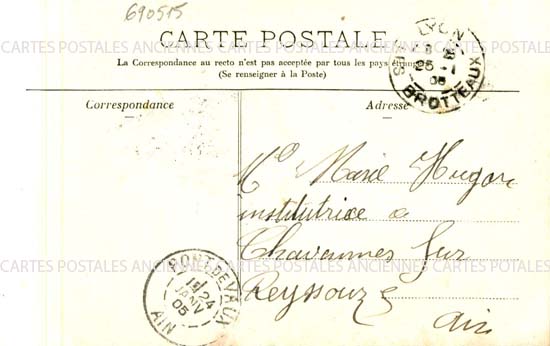 690515
CARTE POSTALE
La Correspondance au recto n'est pas acceptée par tous les pays étrangers
(Se renseigner à la Poste)
CARTES POSTALES ANCIENNES CARTES POSTALES ANCIENNES CARTES POTALES
LYON
05
LES BROTTEAUX
Correspondance
Adresse
Mlle Marie Hugon
institutrice a
Chavannes Sur
Reyssouze
Ain
PONT-DE-VAUX
24
JANV
05
AIN
CARTES POSTALES ANCIENNES CARTES POSTALES ANCIENNES CARTES POTALES